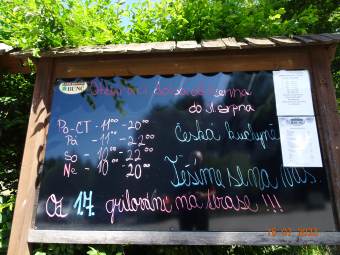 Otevírací doba od června
do 1. srpna
Po-ČT - 11⁰⁰ - 20⁰⁰
Pá - 11⁰⁰ - 22⁰⁰
So - 10⁰⁰ - 22⁰⁰
Ne - 10⁰⁰ - 20⁰⁰
Česká kuchyně
Těšíme se na Vás..
Od 1.7. grilování na terase !!!